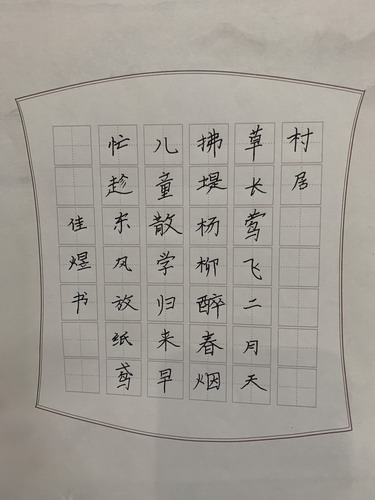 村居
草长莺飞二月天
拂堤杨柳醉春烟
儿童散学归来早
忙趁东风放纸鸢
佳煜书